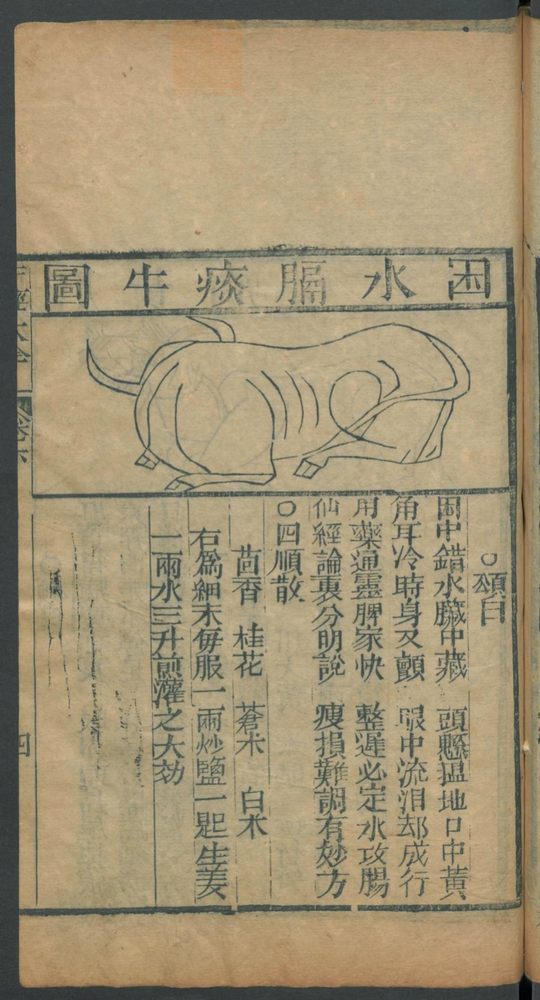 困水膈痰牛圖
○頌曰
困中錯水臟中藏　頭懸搵地口中黃
角耳冷時身又顫　眼中流泪却成行
用藥通靈脾家快　整遲必定水攻腸
仙經論裏分明說　瘦損難調有妙方
○四順散
茴香　桂花　蒼朮　白朮
右爲細末每服一兩炒鹽一匙生姜
一兩水三升煎灌之大効
四